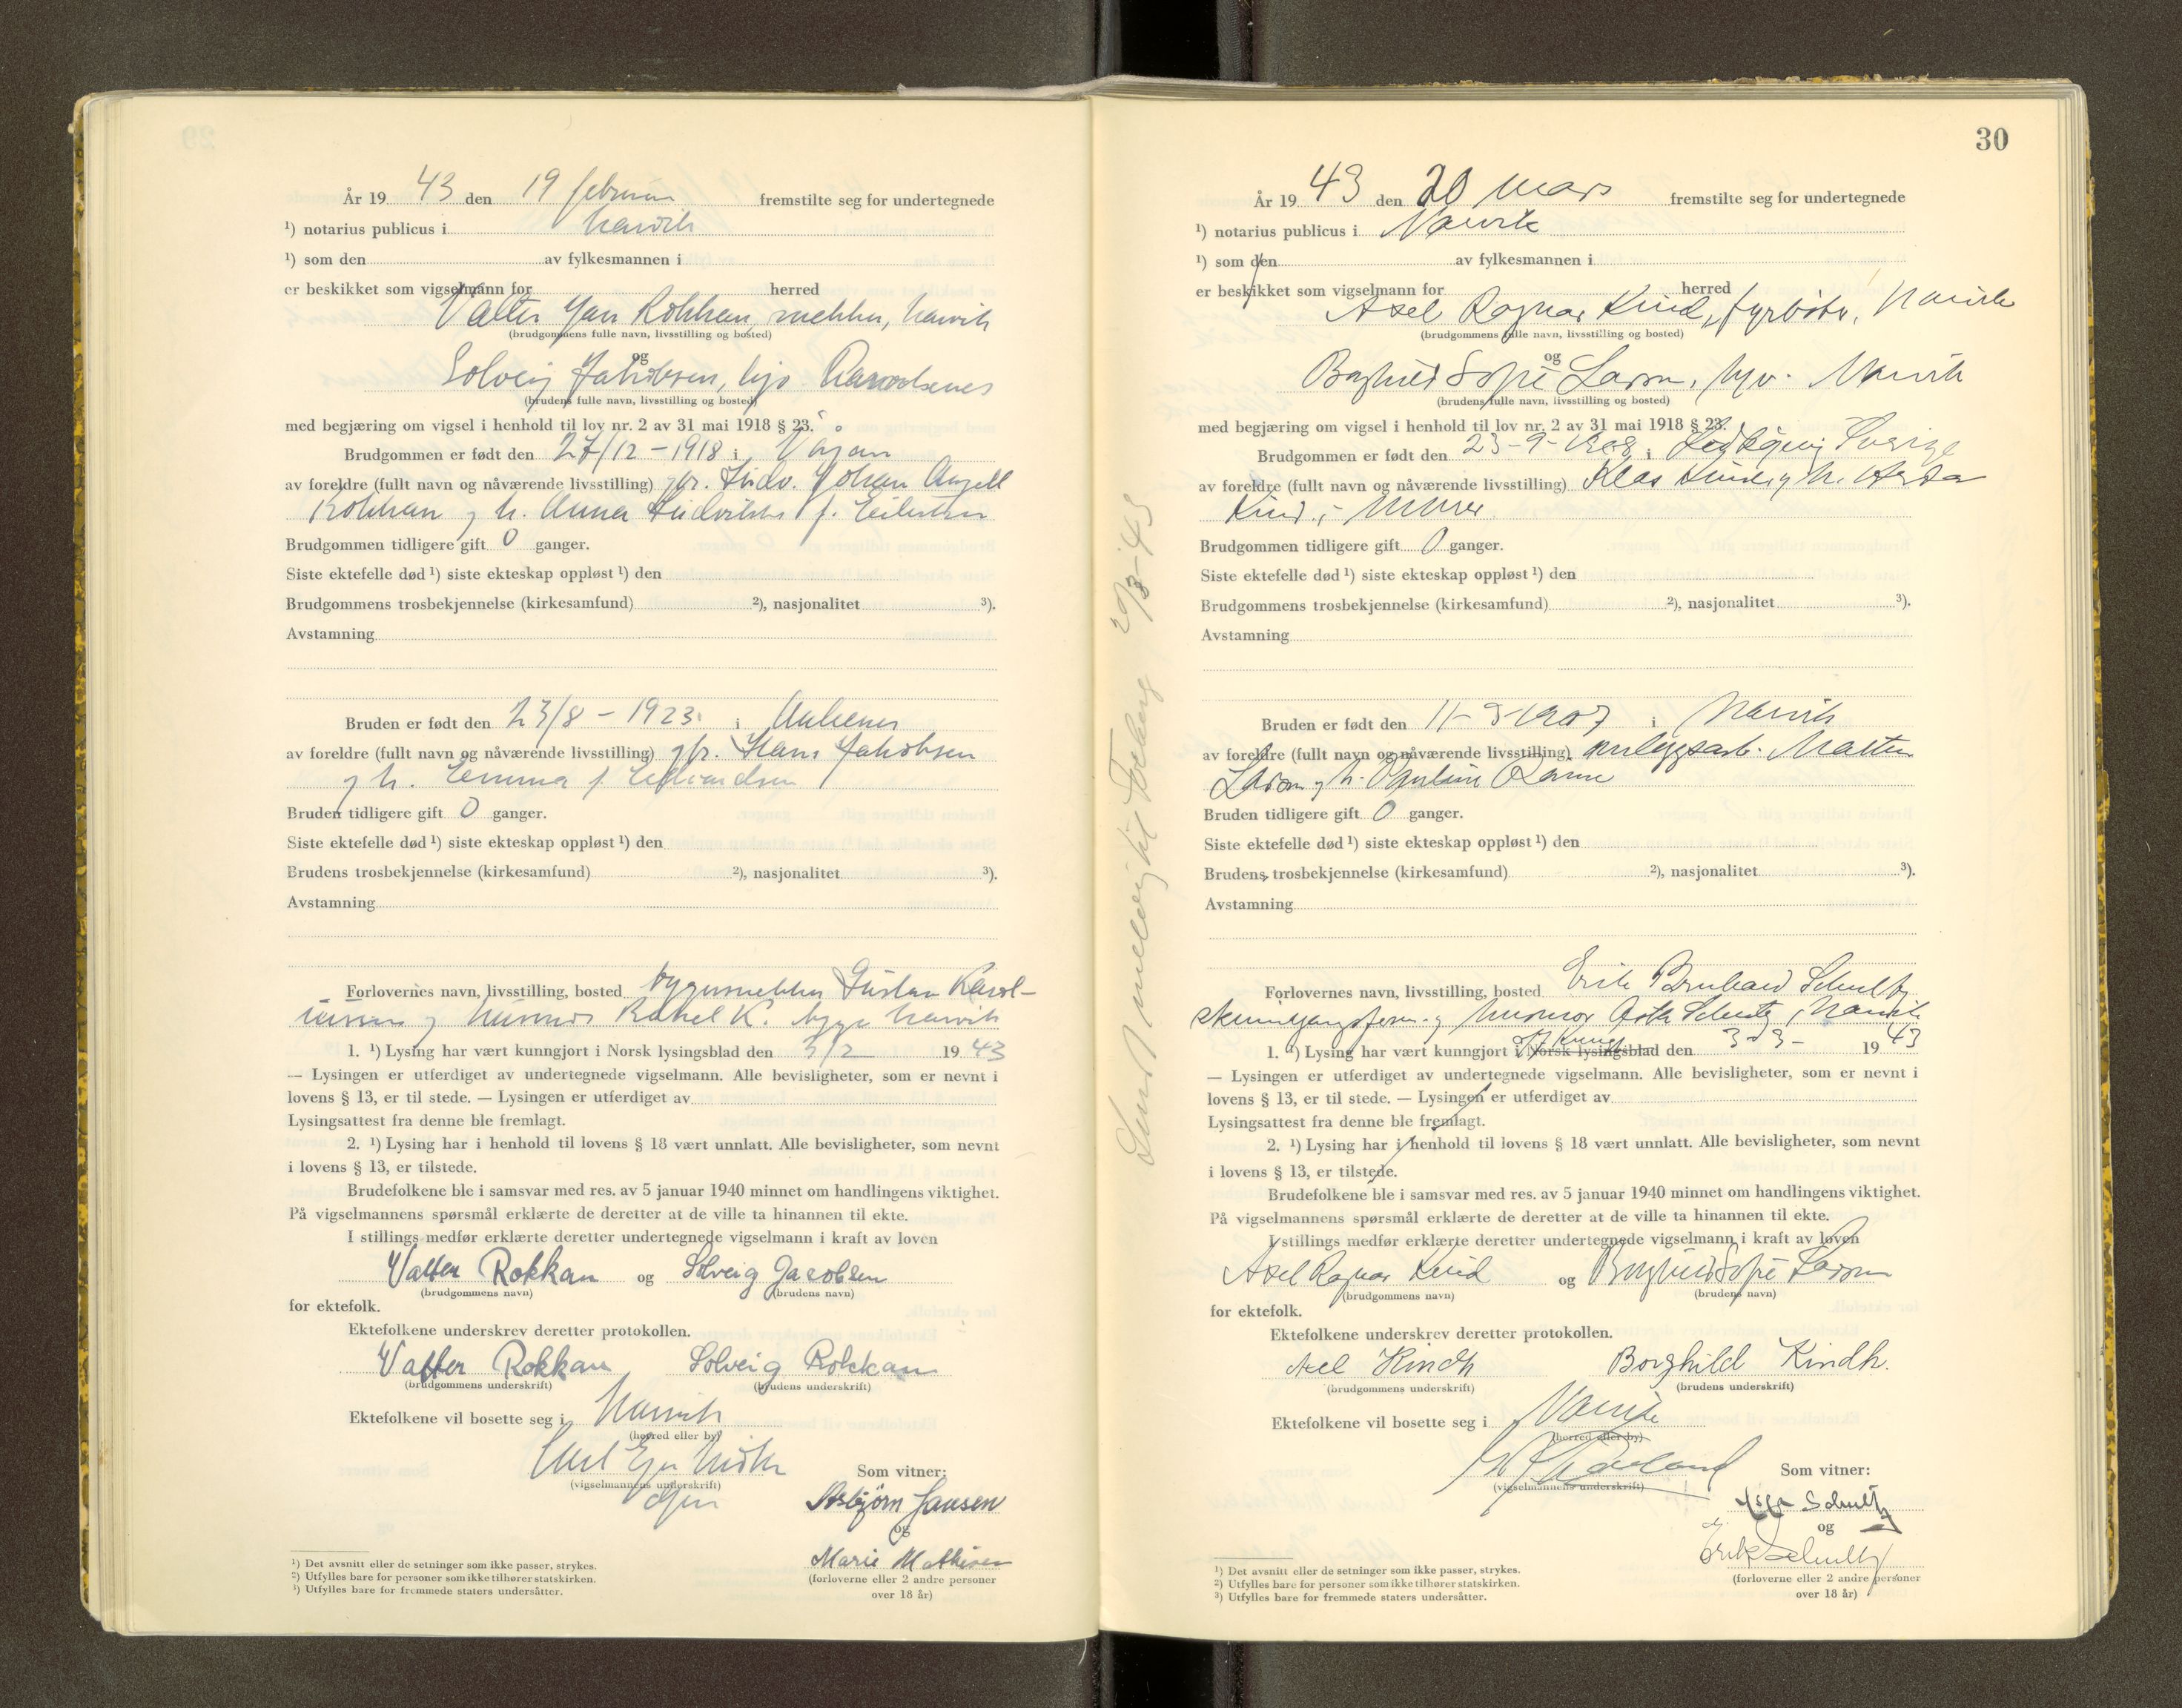 År 19 43 den 19 februar fremstilte seg for undertegnede
¹) notarius publicus i Narvik
¹) som den av fylkesmannen i
er beskikket som vigselmann for herred
Valter Rokkan, snekker, Narvik
(brudgommens fulle navn, livsstilling og bosted)
og
Solveig Jakobsen,
(brudens fulle navn, livsstilling og bosted)
med begjæring om vigsel i henhold til lov nr. 2 av 31 mai 1918 § 23.
Brudgommen er født den 27/12 - 1918 i Vågan
av foreldre (fullt navn og nåværende livsstilling) Johan Angell
Rokkan og h. Anna f.
Brudgommen tidligere gift 0 ganger.
Siste ektefelle død ¹) siste ekteskap oppløst ¹) den
Brudgommens trosbekjennelse (kirkesamfund) ²), nasjonalitet ³).
Avstamning
Bruden er født den 23/8 - 1923 i Ankenes
av foreldre (fullt navn og nåværende livsstilling) gbr. Hans Jakobsen
og h. Emma f. Edvardsen
Bruden tidligere gift 0 ganger.
Siste ektefelle død ¹) siste ekteskap oppløst ¹) den
Brudens trosbekjennelse (kirkesamfund) ²), nasjonalitet ³).
Avstamning
Forlovernes navn, livsstilling, bosted Gustav Karol-
iussen og Rakel K. begge Narvik
1. ¹) Lysing har vært kunngjort i Norsk lysingsblad den 3/2 19 43
— Lysingen er utferdiget av undertegnede vigselmann. Alle bevisligheter, som er nevnt i
lovens § 13, er til stede. — Lysingen er utferdiget av
Lysingsattest fra denne ble fremlagt.
2. ¹) Lysing har i henhold til lovens § 18 vært unnlatt. Alle bevisligheter, som nevnt
i lovens § 13, er tilstede.
Brudefolkene ble i samsvar med res. av 5 januar 1940 minnet om handlingens viktighet.
På vigselmannens spørsmål erklærte de deretter at de ville ta hinannen til ekte.
I stillings medfør erklærte deretter undertegnede vigselmann i kraft av loven
Valter Rokkan og Solveig Jacobsen
(brudgommens navn) (brudens navn)
for ektefolk.
Ektefolkene underskrev deretter protokollen.
Valter Rokkan Solveig Rokkan
(brudgommens underskrift) (brudens underskrift)
Ektefolkene vil bosette seg i Narvik
(herred eller by)
(vigselmannens underskrift)
Som vitner:
Asbjørn Jansen
og
Marie Mathisen
(forloverne eller 2 andre personer
over 18 år)
¹) Det avsnitt eller de setninger som ikke passer, strykes.
²) Utfylles bare for personer som ikke tilhører statskirken.
³) Utfylles bare for fremmede staters undersåtter.
30
År 19 43 den 20 mars fremstilte seg for undertegnede
¹) notarius publicus i Narvik
¹) som den av fylkesmannen i
er beskikket som vigselmann for herred
Axel Ragnar Kind, fyrbøter, Narvik
(brudgommens fulle navn, livsstilling og bosted)
og
Borghild Sofie Larsen, Narvik
(brudens fulle navn, livsstilling og bosted)
med begjæring om vigsel i henhold til lov nr. 2 av 31 mai 1918 § 23.
Brudgommen er født den 23-9-1908 i Sverige
av foreldre (fullt navn og nåværende livsstilling) Klas Kind og h.
Kind, murer
Brudgommen tidligere gift 0 ganger.
Siste ektefelle død ¹) siste ekteskap oppløst ¹) den
Brudgommens trosbekjennelse (kirkesamfund) ²), nasjonalitet ³).
Avstamning
Bruden er født den i Narvik
av foreldre (fullt navn og nåværende livsstilling) anleggsarb.
Larsen og h.
Bruden tidligere gift 0 ganger.
Siste ektefelle død ¹) siste ekteskap oppløst ¹) den
Brudens trosbekjennelse (kirkesamfund) ²), nasjonalitet ³).
Avstamning
Forlovernes navn, livsstilling, bosted Erik Bernhard Schultz
og Schultz, Narvik
1. ¹) Lysing har vært kunngjort i Norsk lysingsblad den 19 43
— Lysingen er utferdiget av undertegnede vigselmann. Alle bevisligheter, som er nevnt i
lovens § 13, er til stede. — Lysingen er utferdiget av
Lysingsattest fra denne ble fremlagt.
2. ¹) Lysing har i henhold til lovens § 18 vært unnlatt. Alle bevisligheter, som nevnt
i lovens § 13, er tilstede.
Brudefolkene ble i samsvar med res. av 5 januar 1940 minnet om handlingens viktighet.
På vigselmannens spørsmål erklærte de deretter at de ville ta hinannen til ekte.
I stillings medfør erklærte deretter undertegnede vigselmann i kraft av loven
Axel Ragnar Kind og Borghild Sofie Larsen
(brudgommens navn) (brudens navn)
for ektefolk.
Ektefolkene underskrev deretter protokollen.
Axel Kindh Borghild Kindh.
(brudgommens underskrift) (brudens underskrift)
Ektefolkene vil bosette seg i Narvik
(herred eller by)
(vigselmannens underskrift)
Som vitner:
Schultz
og
Erik Schultz
(forloverne eller 2 andre personer
over 18 år)
¹) Det avsnitt eller de setninger som ikke passer, strykes.
²) Utfylles bare for personer som ikke tilhører statskirken.
³) Utfylles bare for fremmede staters undersåtter.